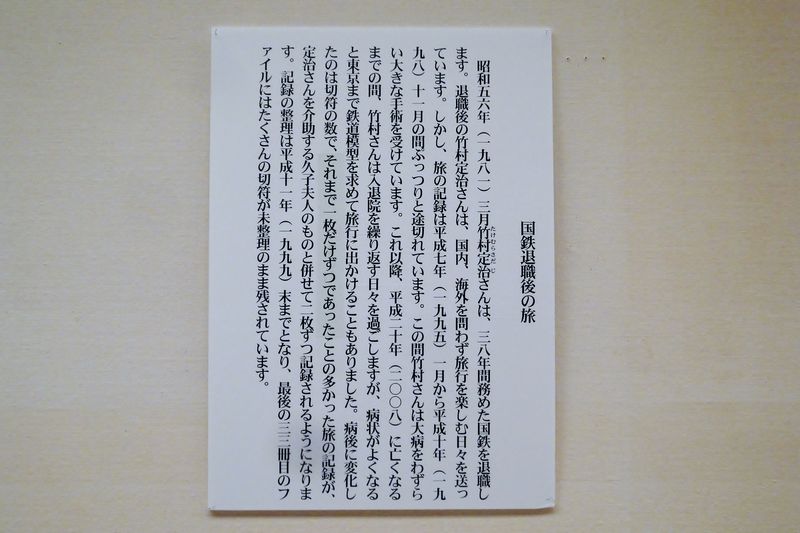 国鉄退職後の旅
昭和五六年（一九八一）三月竹村定治さんは、三八年間務めた国鉄を退職し
たけむらさだじ
ます。退職後の竹村定治さんは、国内、海外を問わず旅行を楽しむ日々を送っ
ています。しかし、旅の記録は平成七年（一九九五）一月から平成十年（一九
九八）十一月の間ぶっつりと途切れています。この間竹村さんは大病をわずら
い大きな手術を受けています。これ以降、平成二十年（二〇〇八）に亡くなる
までの間、竹村さんは入退院を繰り返す日々を過ごしますが、病状がよくなる
と東京まで鉄道模型を求めて旅行に出かけることもありました。病後に変化し
たのは切符の数で、それまで一枚だけずつであったことの多かった旅の記録が、
定治さんを介助する久子夫人のものと併せて二枚ずつ記録されるようになりま
す。記録の整理は平成十一年（一九九九）末までとなり、最後の三三冊目のフ
ァイルにはたくさんの切符が未整理のまま残されています。